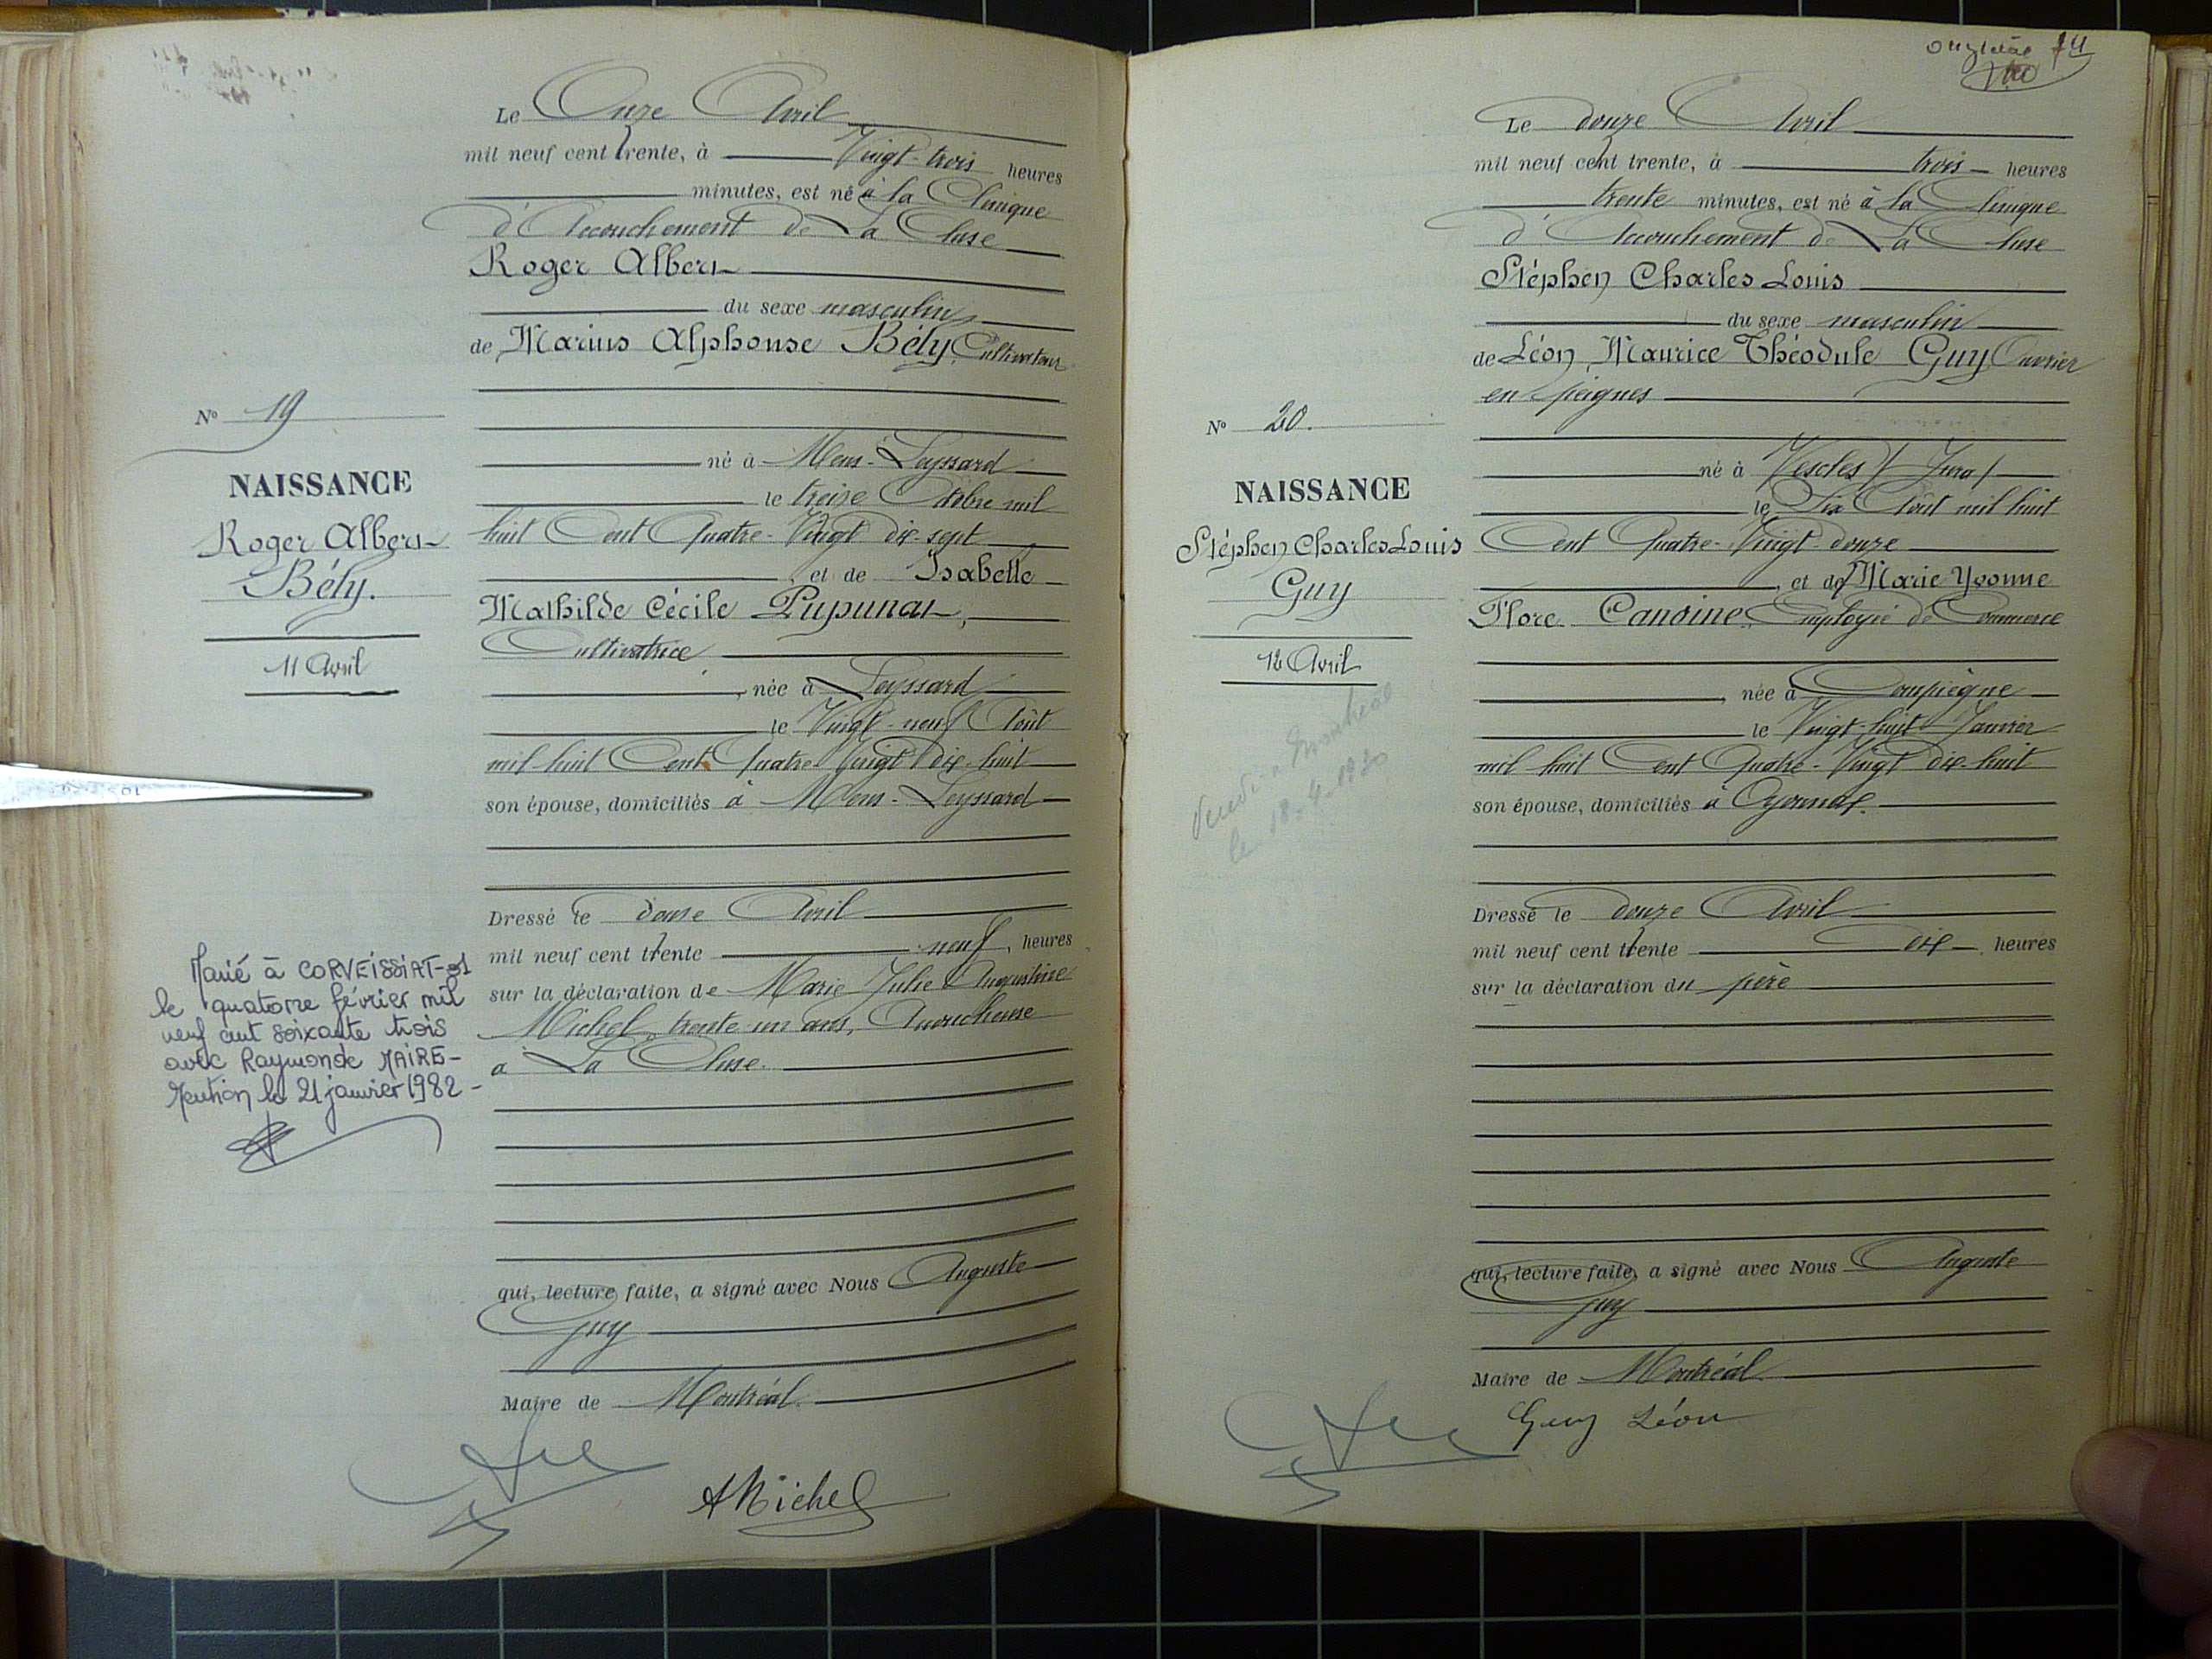 Le Onze Avril
mil neuf cent trente, à Vingt-trois heures
minutes, est né à la Clinique
d'Accouchement de La Cluse
Roger Albert
du sexe masculin
de Marius Alphonse Bély Cultivateur
né à Mens-Leyssard
le treize Octobre mil
huit Cent Quatre-Vingt dix-sept
, et de Isabelle
Mathilde Cécile Pupunat,
Cultivatrice
, née à Leyssard
le Vingt-neuf Août
mil-huit Cent Quatre-Vingt dix-huit
son épouse, domiciliés à Mens-Leyssard
Dressé le douze Avril
mil neuf cent trente neuf, heures
sur la déclaration de Marie Julie Augustine
Michel, trente un ans, Accoucheuse
à La Cluse.
qui, lecture faite, a signé avec Nous Auguste
Guy
Maire de Montréal.
AMichel
N° 19
NAISSANCE
Roger Albert
Bély.
11 Avril
Marié à CORVEISSIAT-01
le quatorze février mil
neuf cent soixante trois
avec Raymonde MAIRE-
Mention le 21 janvier 1982-
onzième
Le douze Avril
mil neuf cent trente, à trois heures
trente minutes, est né à la Clinique
d'Accouchement de La Cluse
Stéphen Charles Louis
du sexe masculin
de Léon Maurice Théodule Guy Ouvrier
en peignes
né à Vescles (Jura)
le Six Août mil huit
Cent Quatre-Vingt-douze
, et de Marie Yvonne
Flore Candine Employée de Commerce
, née à Compiègne
le Vingt-huit Janvier
mil huit Cent Quatre-Vingt dix-huit
son épouse, domiciliés à Oyonnax.
Dressé le douze Avril
mil neuf cent trente dix heures
sur la déclaration du père
qui, lecture faite, a signé avec Nous Auguste
Guy
Maire de Montréal.
Guy Léon
N° 20.
NAISSANCE
Stéphen Charles Louis
Guy
12 Avril
à Montréal
le 18-4-1930